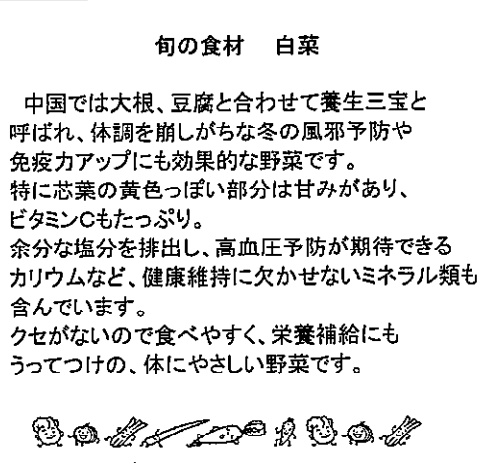 旬の食材　白菜
中国では大根、豆腐と合わせて養生三宝と
呼ばれ、体調を崩しがちな冬の風邪予防や
免疫力アップにも効果的な野菜です。
特に芯葉の黄色っぽい部分は甘みがあり、
ビタミンCもたっぷり。
余分な塩分を排出し、高血圧予防が期待できる
カリウムなど、健康維持に欠かせないミネラル類も
含んでいます。
クセがないので食べやすく、栄養補給にも
うってつけの、体にやさしい野菜です。